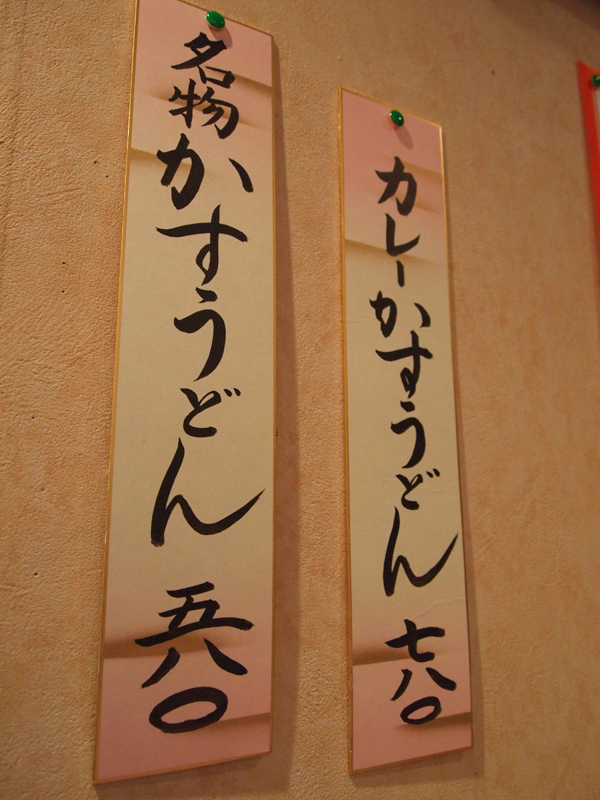 名物かすうどん 五八〇
カレーかすうどん 七八〇